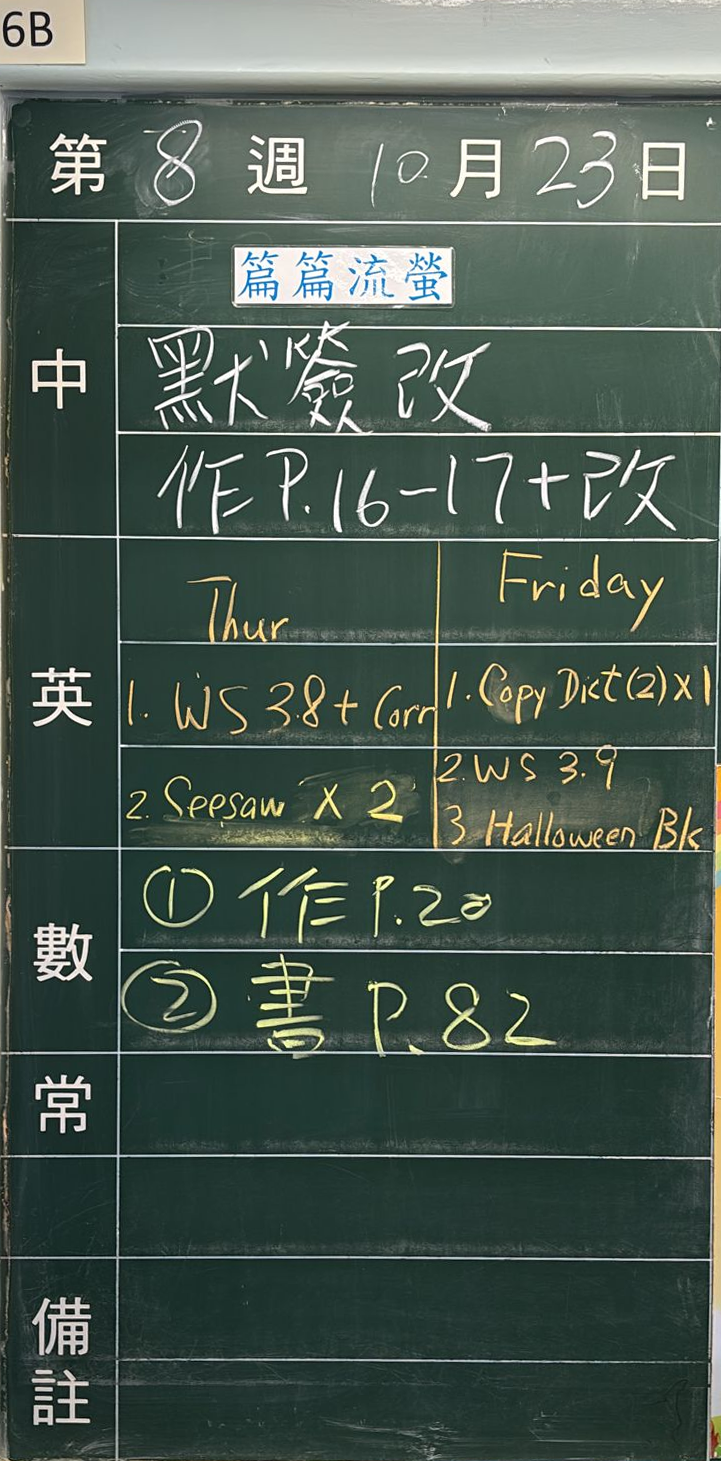 6B
第 8 週 10 月 23 日
中
篇篇流螢
默簽改
作P.16-17+改
英
Thur
1. WS 3.8 + Corr
2. Seesaw x 2
Friday
1. Copy Dict(2) x 1
2. WS 3.9
3 Halloween Bk
數
① 作 P.20
② 書 P.82
常
備註